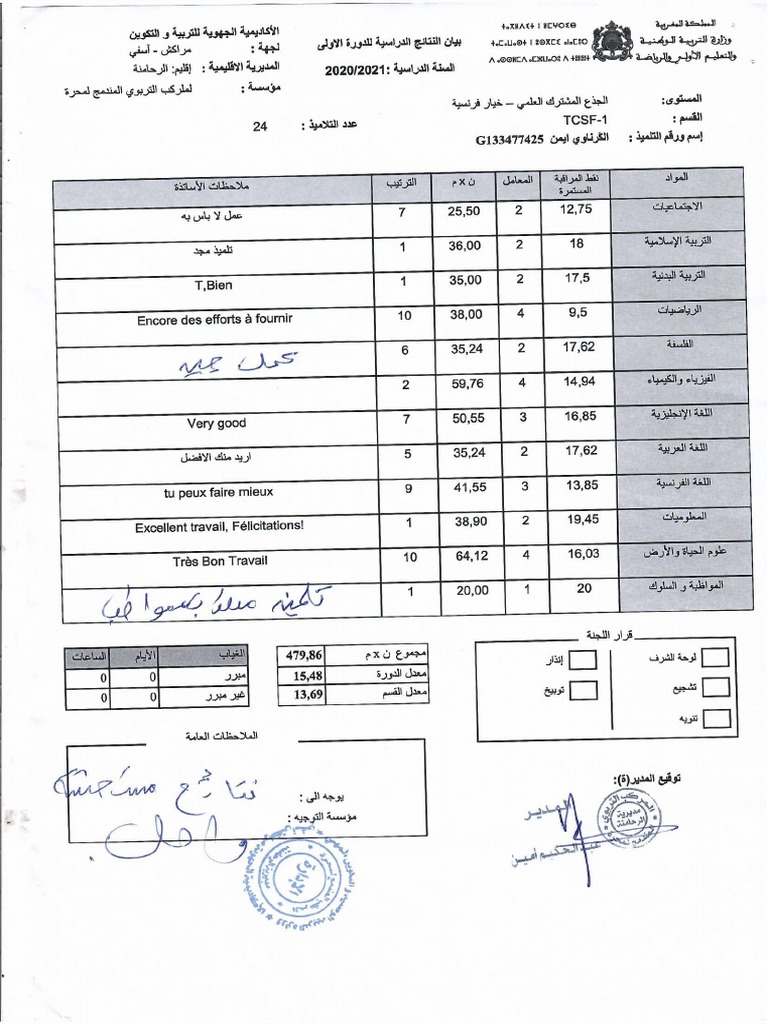 المملكة المغربية
وزارة التربية الوطنية
والتعليم الأولي والرياضة
بيان النتائج الدراسية للدورة الاولى
السنة الدراسية :2020/2021
الأكاديمية الجهوية للتربية و التكوين
لجهة : مراكش - آسفي
المديرية الاقليمية : إقليم: الرحامنة
مؤسسة : لملركب التربوي المندمج لمحرة
المستوى: الجذع المشترك العلمي – خيار فرنسية
القسم : TCSF-1
عدد التلاميذ : 24
إسم ورقم التلميذ : الكرناوي ايمن G133477425
المواد نقط المراقبة المستمرة المعامل ن x م الترتيب ملاحظات الأساتذة
الاجتماعيات 12,75 2 25,50 7 عمل لا باس به
التربية الإسلامية 18 2 36,00 1 تلميذ مجد
التربية البدنية 17,5 2 35,00 1 T,Bien
الرياضيات 9,5 4 38,00 10 Encore des efforts à fournir
الفلسفة 17,62 2 35,24 6 عمل جيد
الفيزياء والكيمياء 14,94 4 59,76 2
اللغة الإنجليزية 16,85 3 50,55 7 Very good
اللغة العربية 17,62 2 35,24 5 اريد منك الافضل
اللغة الفرنسية 13,85 3 41,55 9 tu peux faire mieux
المعلوميات 19,45 2 38,90 1 Excellent travail, Félicitations!
علوم الحياة والأرض 16,03 4 64,12 10 Très Bon Travail
المواظبة و السلوك 20 1 20,00 1 تلميذ
قرار اللجنة
لوحة الشرف
تشجيع
تنويه
إنذار
توبيخ
مجموع ن x م 479,86
معدل الدورة 15,48
معدل القسم 13,69
الغياب الأيام الساعات
مبرر 0 0
غير مبرر 0 0
الملاحظات العامة
نتائج
يوجه الى :
مؤسسة التوجيه :
واصل
توقيع المدير(ة):
المدير
عبد الحكيم أمين